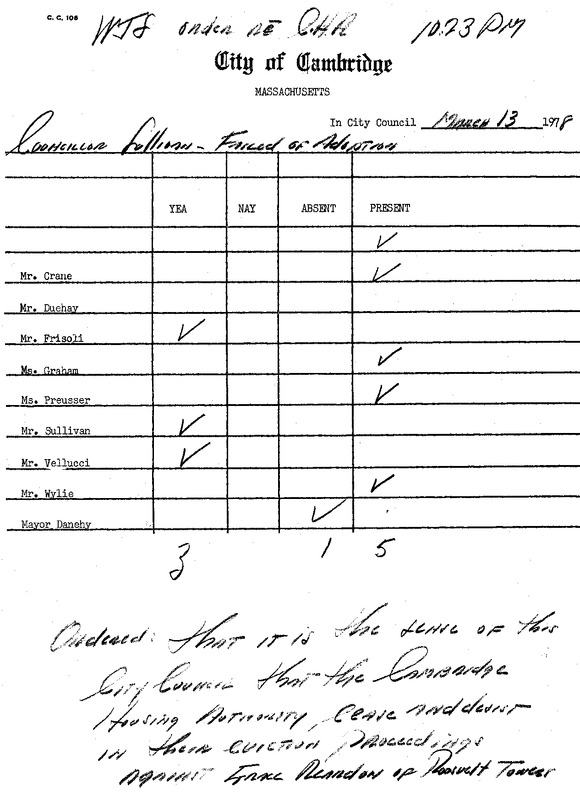 C. C. 106
WJS order re C.H.A 10:23 PM
City of Cambridge
MASSACHUSETTS
In City Council March 13 1978
Councillor Sullivan - Failed of Adoption
YEA NAY ABSENT PRESENT
✓
Mr. Crane ✓
Mr. Duehay
Mr. Frisoli ✓
Ms. Graham ✓
Ms. Preusser ✓
Mr. Sullivan ✓
Mr. Vellucci ✓
Mr. Wylie ✓
Mayor Danehy ✓
3 1 5
Ordered: that it is the sense of this
City Council that the Cambridge
Housing Authority, cease and desist
in their eviction proceedings
against Reardon of Roosvelt Towers